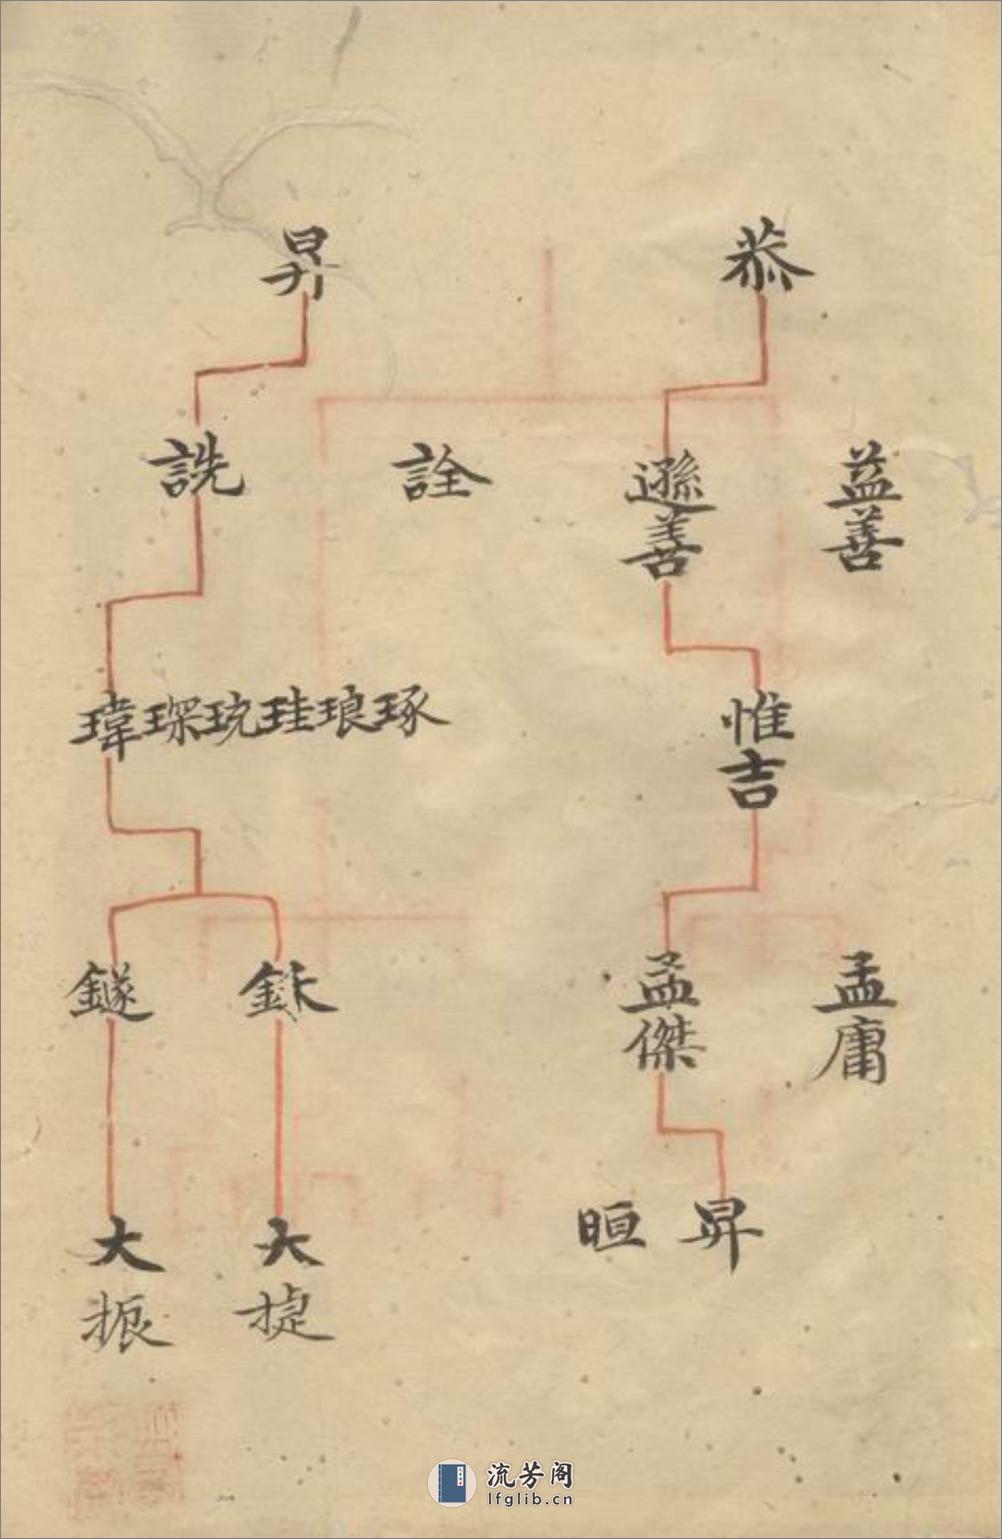 恭
益善
遜善
惟吉
孟庸
孟傑
昇
晅
昇
詮
詵
琢
琅
珪
琓
琛
瑋
鉌
鐩
大㨗
大振
流芳阁
lfglib.cn